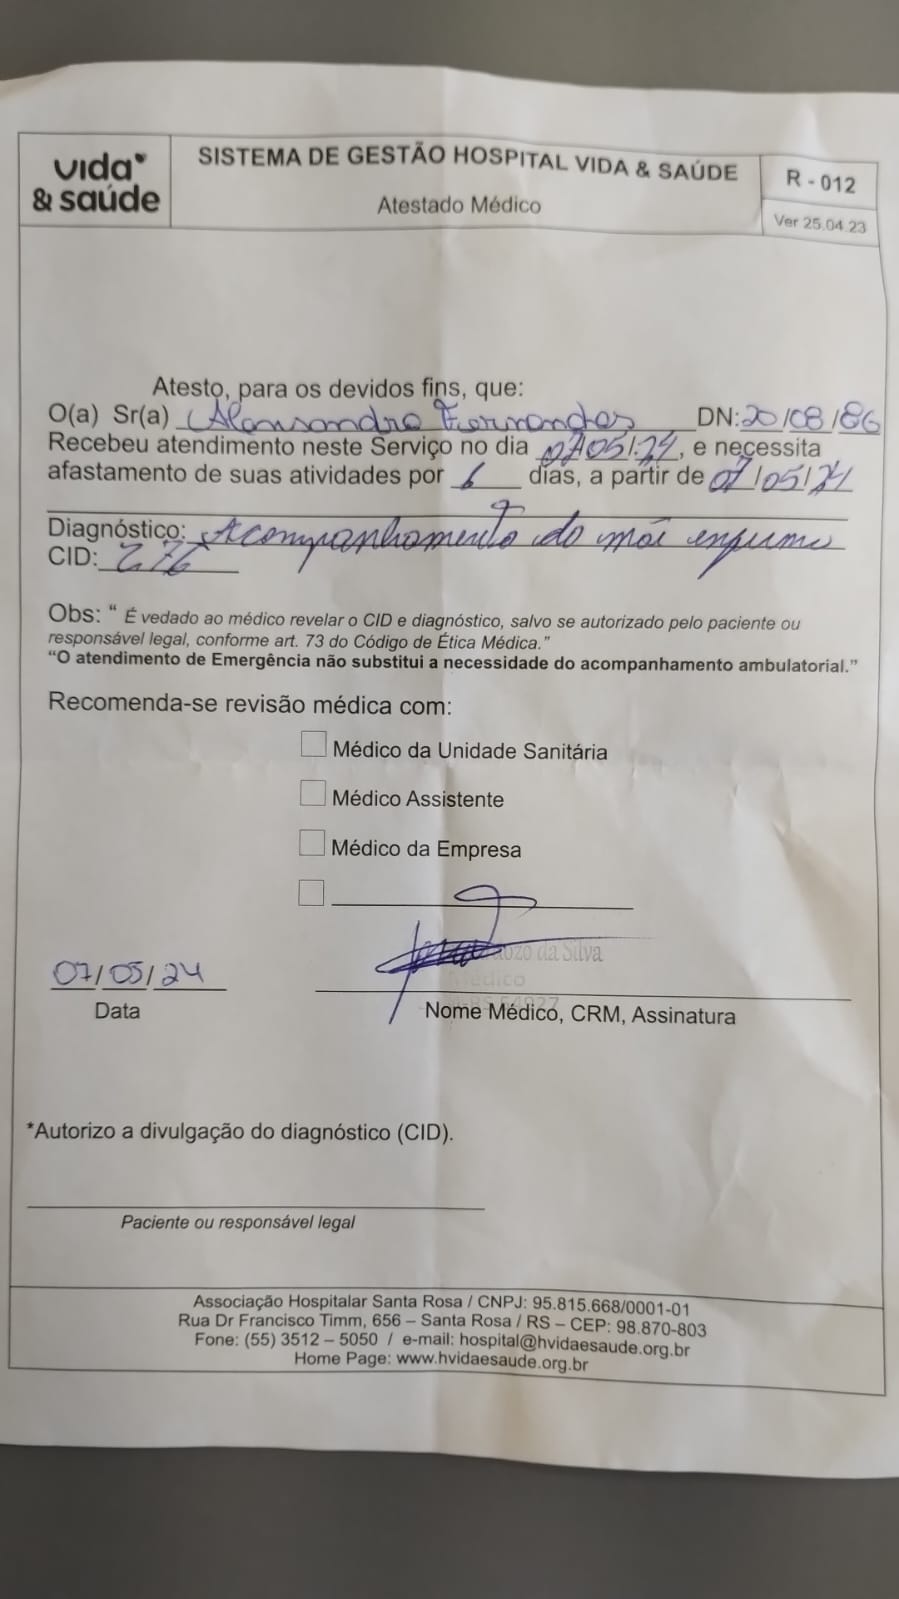 vida
& saúde
SISTEMA DE GESTÃO HOSPITAL VIDA & SAÚDE
Atestado Médico
R - 012
Ver 25.04.23
Atesto, para os devidos fins, que:
O(a) Sr(a) Alessandro Fernandes DN: 20/08/86
Recebeu atendimento neste Serviço no dia 07/05/24, e necessita
afastamento de suas atividades por 6 dias, a partir de 07/05/24
Diagnóstico: Acompanhamento do mãe enferma
CID: Z76
Obs: “ É vedado ao médico revelar o CID e diagnóstico, salvo se autorizado pelo paciente ou
responsável legal, conforme art. 73 do Código de Ética Médica.”
“O atendimento de Emergência não substitui a necessidade do acompanhamento ambulatorial.”
Recomenda-se revisão médica com:
Médico da Unidade Sanitária
Médico Assistente
Médico da Empresa
da Silva
Médico
07/05/24
Data
Nome Médico, CRM, Assinatura
*Autorizo a divulgação do diagnóstico (CID).
Paciente ou responsável legal
Associação Hospitalar Santa Rosa / CNPJ: 95.815.668/0001-01
Rua Dr Francisco Timm, 656 – Santa Rosa / RS – CEP: 98.870-803
Fone: (55) 3512 – 5050 / e-mail: hospital@hvidaesaude.org.br
Home Page: www.hvidaesaude.org.br